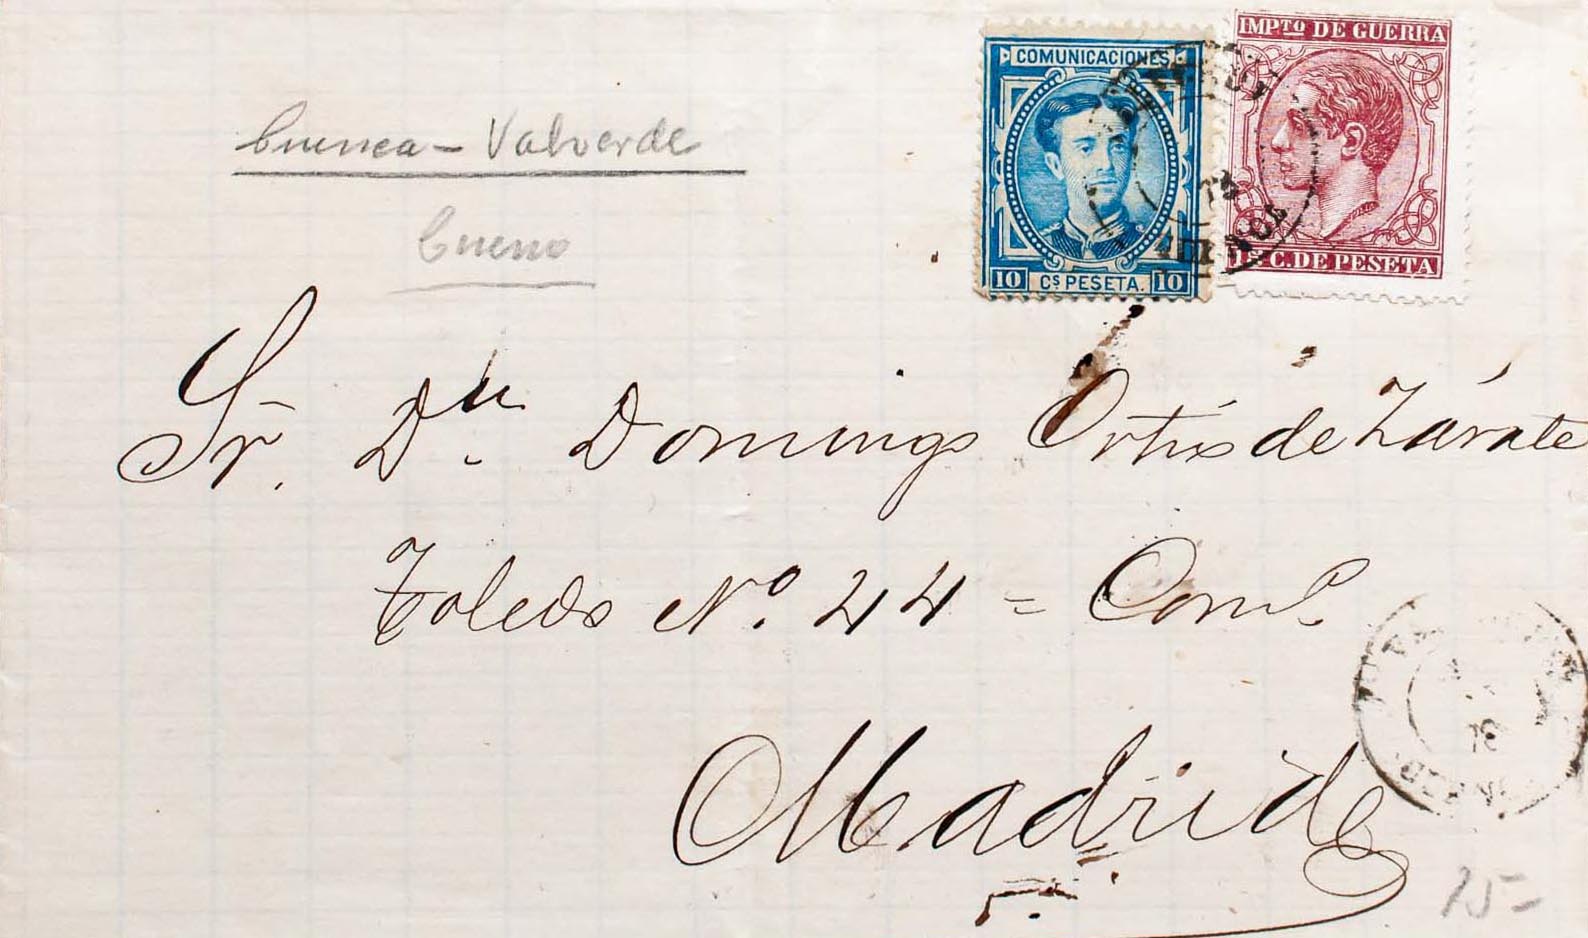 COMUNICACIONES
10 Cs PESETA. 10
IMPTO DE GUERRA
15 C. DE PESETA
Cuenca - Valverde
bueno
Sr. Dn. Domingo Ortiz de Zárate
Toledo No. 44 = Coml.
Madrid
15-